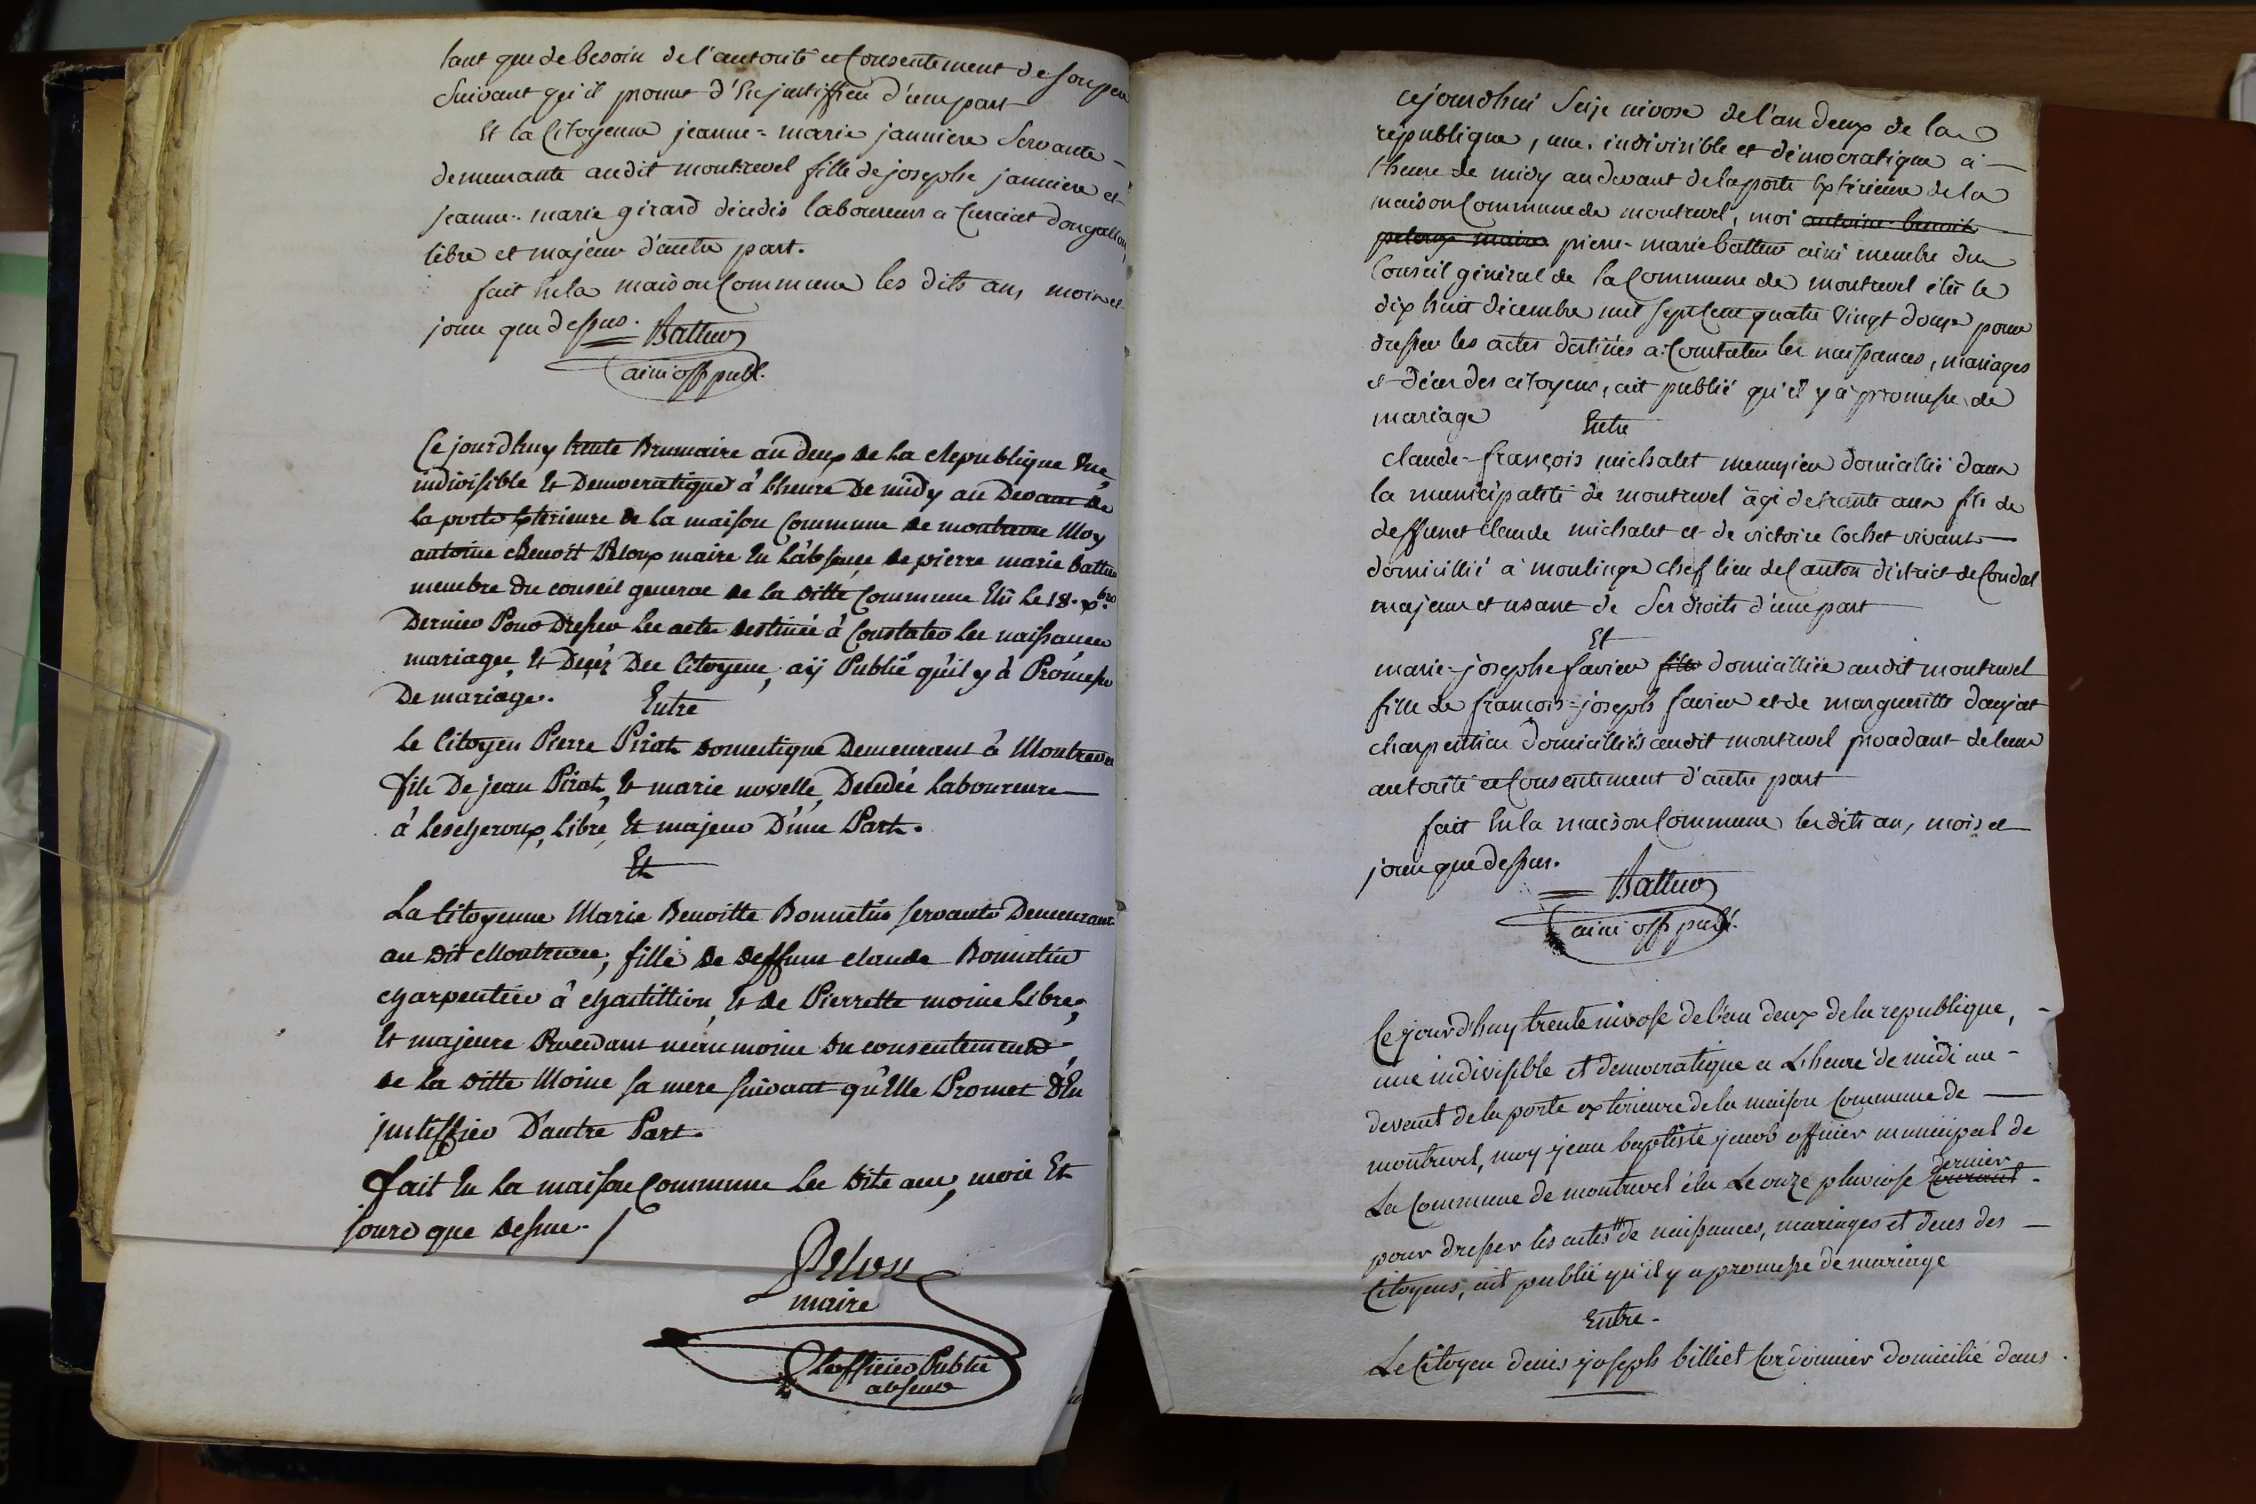 tant que de besoin de l'autorité et Consentement de son pere
Suivant qu'il promet d'En justiffier d'une part
Et la Citoyenne jeanne-marie janniere Servante
demeurante audit montrevel fille de josephe janniere et
jeanne-marie girard décédés laboureurs a Curciat dongallon,
libre et majeur d'autre part.
fait En la maison Commune les dits an, mois et
jour que dessus. Battur
ainé off publ.
Ce jourd'huy trente Brumaire an deux de la Republique Une
indivisible Et Democratique à L'heure De midy au Devant de
la porte Exterieure de la maison Commune de montrevel Moy
antoine Benoit Peloux maire En L'absence de pierre marie battur
membre du conseil general de la ditte Commune Elû Le 18. xbre
Dernier Pour Dresser les actes destinés à Constater les naissances
mariages, Et Decéz Des Citoyens, aÿ Publié qu'il y à Promesse
De mariage.
Entre
Le Citoyen Pierre Pirat domestique Demeurant à Montrevel
fils De jean Pirat, Et marie novelle, Decedés Laboureurs
à Lescheroux, Libre, Et majeur D'une Part.
Et
La Citoyenne Marie Benoitte Bonnetin servante Demeurant
au dit Montrevel, fille de deffunt claude Bonnetin
charpentier à chatillion, Et de Pierrette moine Libre,
Et majeure Procedant néanmoins du consentement
de la ditte Moine sa mere suivant qu'Elle Promet d'En
justiffier D'autre Part.
fait En la maison Commune Les dits an, mois Et
jours que dessus.
Peloux
maire
L'officier Public
absent
cejourdhui Seize nivose de l'an deux de la
république, une, indivisible et démocratique a
l'heure de midy au devant de la porte Extérieure de la
maison Commune de montrevel, moi antoine-benoit
peloux maire pierre-marie battur ainé membre du
Conseil général de la Commune de montrevel élu le
dix huit décembre mil sept Cent quatre Vingt douze pour
dresser les actes destinés a Constater les naissances, mariages
et décès des citoyens, ait publié qu'il y a promesse de
mariage
Entre
claude-françois michalet menuzier domicillié dans
la municipalité de montrevel âgé de trante ans fils de
deffunct Claude michalet et de victoire Cochet vivante
domicillié a moulinge chef lieu de Canton district de Condal
majeur et usant de Ses droits d'une part
Et
marie-josephe favier fille domicilliée audit montrevel
fille de francois-joseph favier et de margueritte danjat
charpentier domicilliés audit montrevel procedant de leur
autorité et Consentement d'autre part
fait En la maison Commune les dits an, mois et
jour que dessus.
Battur
ainé off publ.
Ce jourd'huy trente nivose de l'an deux de la republique,
une indivisible et democratique a L'heure de midi au
devant de la porte exterieure de la maison Commune de
montrevel, moy jean baptiste jacob officier municipal de
La Commune de montrevel élu Le onze pluviose Courant dernier
pour dresser les actes de naissances, mariages et deces des
Citoyens, ait publié qu'il y a promesse de mariage
Entre
Le Citoyen denis joseph billiet Cordonnier domicilié dans